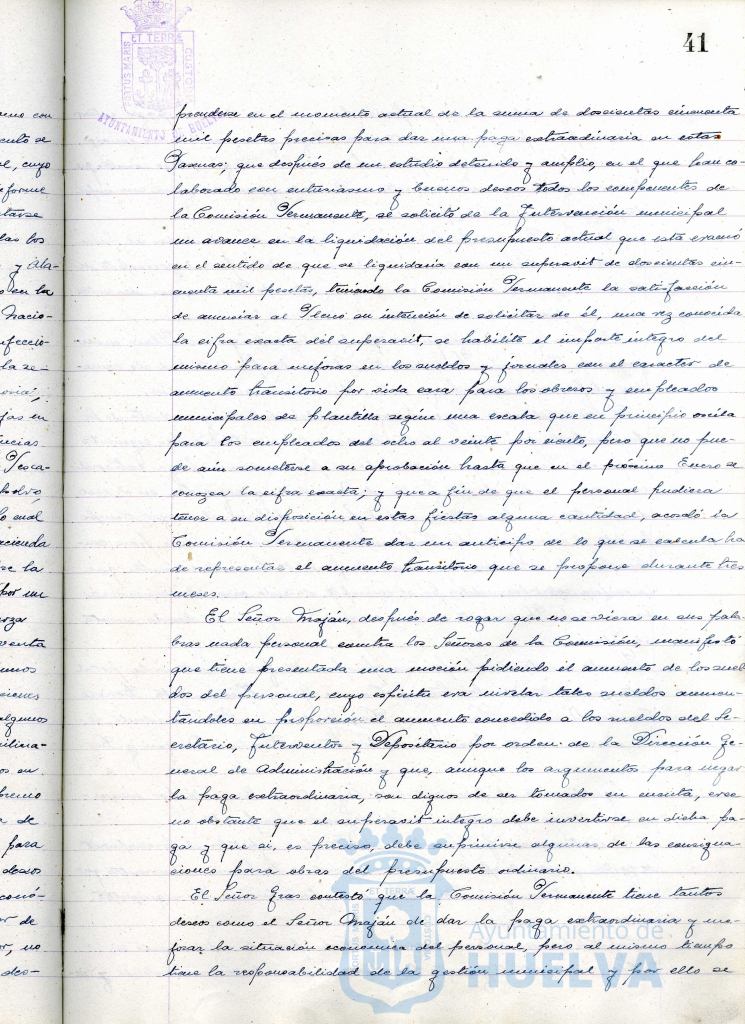 41
PORTUS MARIS ET TERRÆ CUSTODIA
AYUNTAMIENTO DE HUELVA
prenderse en el momento actual de la suma de doscientas cincuenta
mil pesetas precisas para dar una paga extraordinaria en estas
Pascuas; que después de un estudio detenido y amplio, en el que han co-
laborado con entusiasmo y buenos deseos todos los componentes de
la Comisión Permanente, se solicitó de la Intervención municipal
un avance en la liquidación del presupuesto actual que ésta evacuó
en el sentido de que se liquidaria con un superavit de doscientas cin-
cuenta mil pesetas, teniendo la Comisión Permanente la satisfacción
de anunciar al Pleno su intención de solicitar de él, una vez conocida
la cifra exacta del superavit, se habilite el importe integro del
mismo para mejoras en los sueldos y jornales con el caracter de
aumento transitorio por vida cara para los obreros y empleados
municipales de plantilla según una escala que en principio oscila
para los empleados del ocho al veinte por ciento, pero que no pue-
de aún someterse a su aprobación hasta que en el proximo Enero se
conozca la cifra exacta; y que a fin de que el personal pudiera
tener a su disposición en estas fiestas alguna cantidad, acordó la
Comisión Permanente dar un anticipo de lo que se calcula ha
de representar el aumento transitorio que se propone durante tres
meses.
El Señor Maján, después de rogar que no se viera en sus pala-
bras nada personal contra los Señores de la Comisión, manifestó
que tiene presentada una moción pidiendo el aumento de los suel-
dos del personal, cuyo espíritu era nivelar tales sueldos aumen-
tandoles en proporción el aumento concedido a los sueldos del Se-
cretario, Interventor y Depositario por orden de la Dirección Ge-
neral de Administración y que, aunque los argumentos para negar
la paga extraordinaria, son dignos de ser tomados en cuenta, cree
no obstante que el superavit integro debe invertirse en dicha pa-
ga y que si, es preciso, debe suprimirse algunas de las consigna-
ciones para obras del presupuesto ordinario.
El Señor Gras contestó que la Comisión Permanente tiene tantos
deseos como el Señor Maján de dar la paga extraordinaria y me-
jorar la situación económica del personal, pero al mismo tiempo
tiene la responsabilidad de la gestión municipal y por ello se
Ayuntamiento de
HUELVA